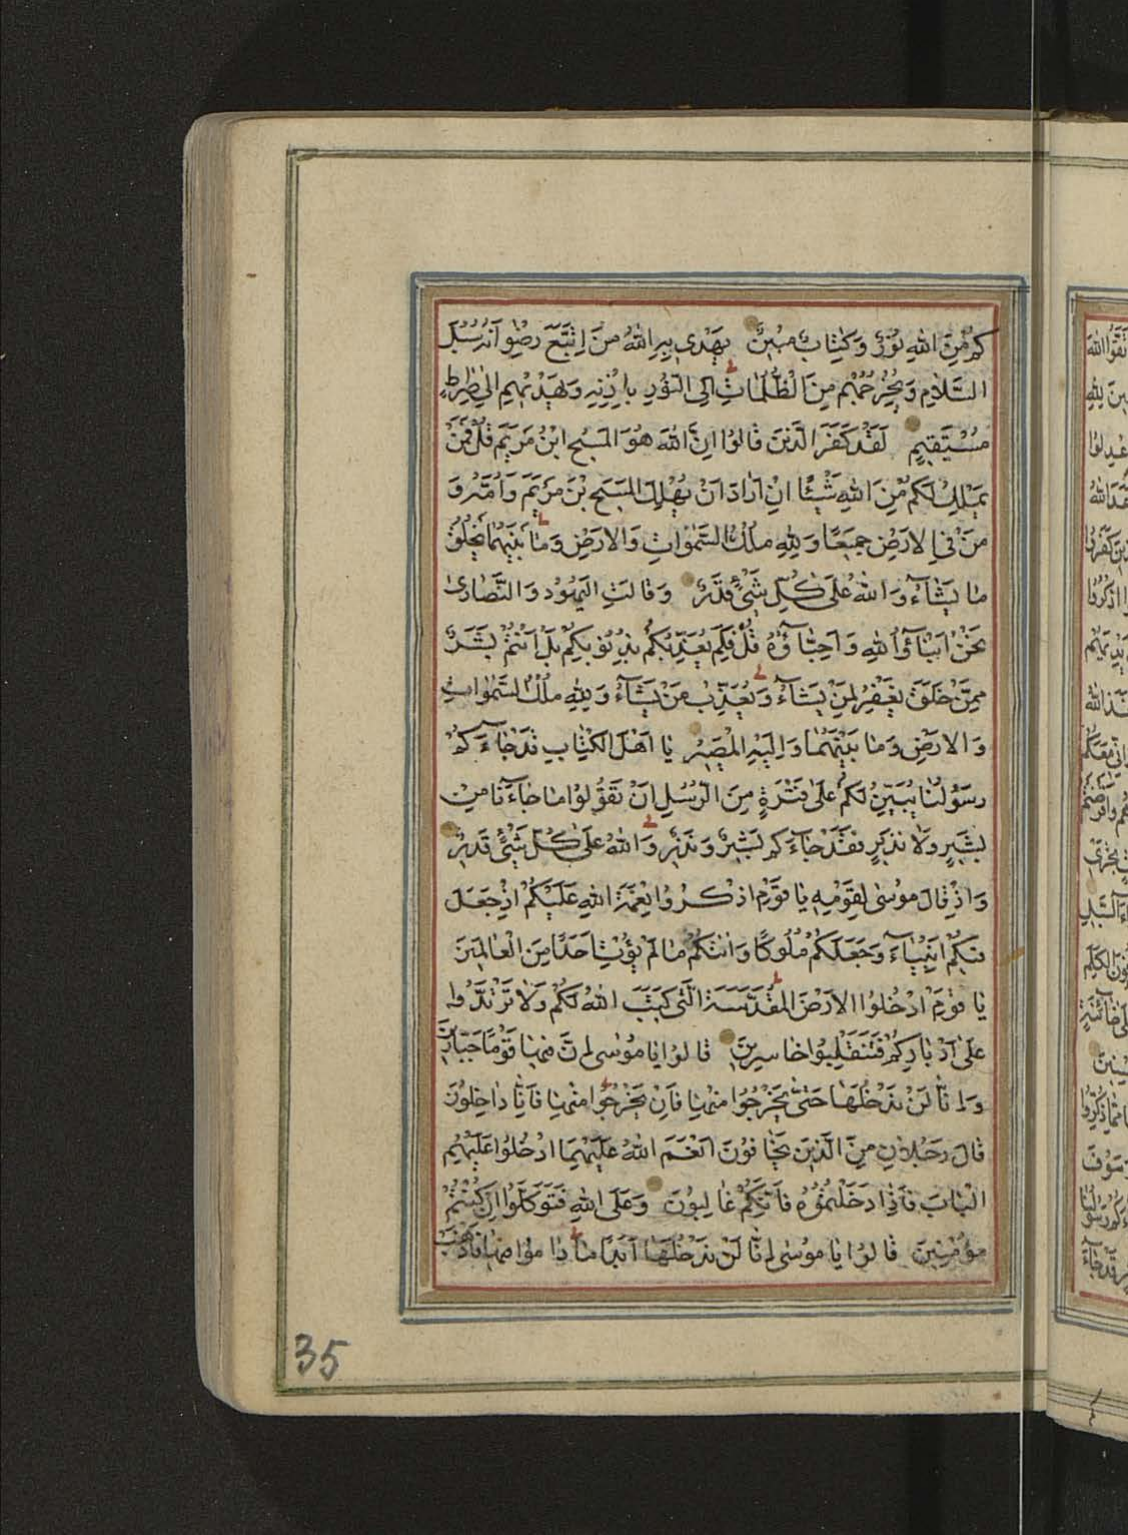 كم مِنَ اللهِ نُورٌ وَكِتَابٌ مُبِينٌ يَهْدِي بِهِ اللهُ مَنِ اتَّبَعَ رِضْوَانَهُ سُبُلَ
السَّلَامِ وَيُخْرِجُهُمْ مِنَ الظُّلُمَاتِ إِلَى النُّورِ بِإِذْنِهِ وَيَهْدِيهِمْ إِلَى صِرَاطٍ
مُسْتَقِيمٍ لَقَدْ كَفَرَ الَّذِينَ قَالُوا إِنَّ اللهَ هُوَ الْمَسِيحُ ابْنُ مَرْيَمَ قُلْ فَمَنْ
يَمْلِكُ لَكُمْ مِنَ اللهِ شَيْئًا إِنْ أَرَادَ أَنْ يُهْلِكَ الْمَسِيحَ بْنَ مَرْيَمَ وَأُمَّهُ وَ
مَنْ فِي الْأَرْضِ جَمِيعًا وَلِلّهِ مُلْكُ السَّمٰوَاتِ وَالْأَرْضِ وَمَا بَيْنَهُمَا يَخْلُقُ
مَا يَشَاءُ وَاللهُ عَلَى كُلِّ شَيْءٍ قَدِيرٌ وَقَالَتِ الْيَهُودُ وَالنَّصَارَى
نَحْنُ أَبْنَاءُ اللهِ وَأَحِبَّاؤُهُ قُلْ فَلِمَ يُعَذِّبُكُمْ بِذُنُوبِكُمْ بَلْ أَنْتُمْ بَشَرٌ
مِمَّنْ خَلَقَ يَغْفِرُ لِمَنْ يَشَاءُ وَيُعَذِّبُ مَنْ يَشَاءُ وَلِلّهِ مُلْكُ السَّمٰوَاتِ
وَالْأَرْضِ وَمَا بَيْنَهُمَا وَإِلَيْهِ الْمَصِيرُ يَا أَهْلَ الْكِتَابِ قَدْ جَاءَكُمْ
رَسُولُنَا يُبَيِّنُ لَكُمْ عَلَى فَتْرَةٍ مِنَ الرُّسُلِ أَنْ تَقُولُوا مَا جَاءَنَا مِنْ
بَشِيرٍ وَلَا نَذِيرٍ فَقَدْ جَاءَكُمْ بَشِيرٌ وَنَذِيرٌ وَاللهُ عَلَى كُلِّ شَيْءٍ قَدِيرٌ
وَإِذْ قَالَ مُوسَى لِقَوْمِهِ يَا قَوْمِ اذْكُرُوا نِعْمَةَ اللهِ عَلَيْكُمْ إِذْ جَعَلَ
فِيكُمْ أَنْبِيَاءَ وَجَعَلَكُمْ مُلُوكًا وَآتَاكُمْ مَا لَمْ يُؤْتِ أَحَدًا مِنَ الْعَالَمِينَ
يَا قَوْمِ ادْخُلُوا الْأَرْضَ الْمُقَدَّسَةَ الَّتِي كَتَبَ اللهُ لَكُمْ وَلَا تَرْتَدُّوا
عَلَى أَدْبَارِكُمْ فَتَنْقَلِبُوا خَاسِرِينَ قَالُوا يَا مُوسَى إِنَّ فِيهَا قَوْمًا جَبَّارِينَ
وَإِنَّا لَنْ نَدْخُلَهَا حَتَّى يَخْرُجُوا مِنْهَا فَإِنْ يَخْرُجُوا مِنْهَا فَإِنَّا دَاخِلُونَ
قَالَ رَجُلَانِ مِنَ الَّذِينَ يَخَافُونَ أَنْعَمَ اللهُ عَلَيْهِمَا ادْخُلُوا عَلَيْهِمُ
الْبَابَ فَإِذَا دَخَلْتُمُوهُ فَإِنَّكُمْ غَالِبُونَ وَعَلَى اللهِ فَتَوَكَّلُوا إِنْ كُنْتُمْ
مُؤْمِنِينَ قَالُوا يَا مُوسَى إِنَّا لَنْ نَدْخُلَهَا أَبَدًا مَا دَامُوا فِيهَا فَاذْهَبْ
35